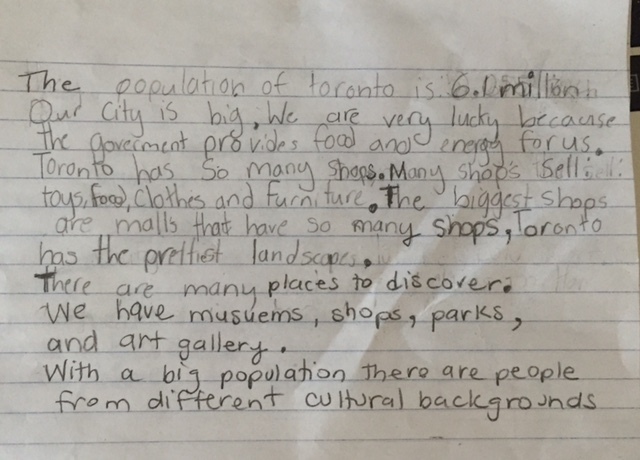 The population of toronto is 6.1 millon.
Our city is big, We are very lucky because
The goverment provides food and energy for us.
Toronto has So many Shops. Many shops Sell:
toys, food, Clothes and furniture. The biggest shops
are malls that have so many shops, Toronto
has the prettist landscapes.
There are many places to discover.
We have musuems, shops, parks,
and art gallery.
With a big population there are people
from different cultural backgrounds